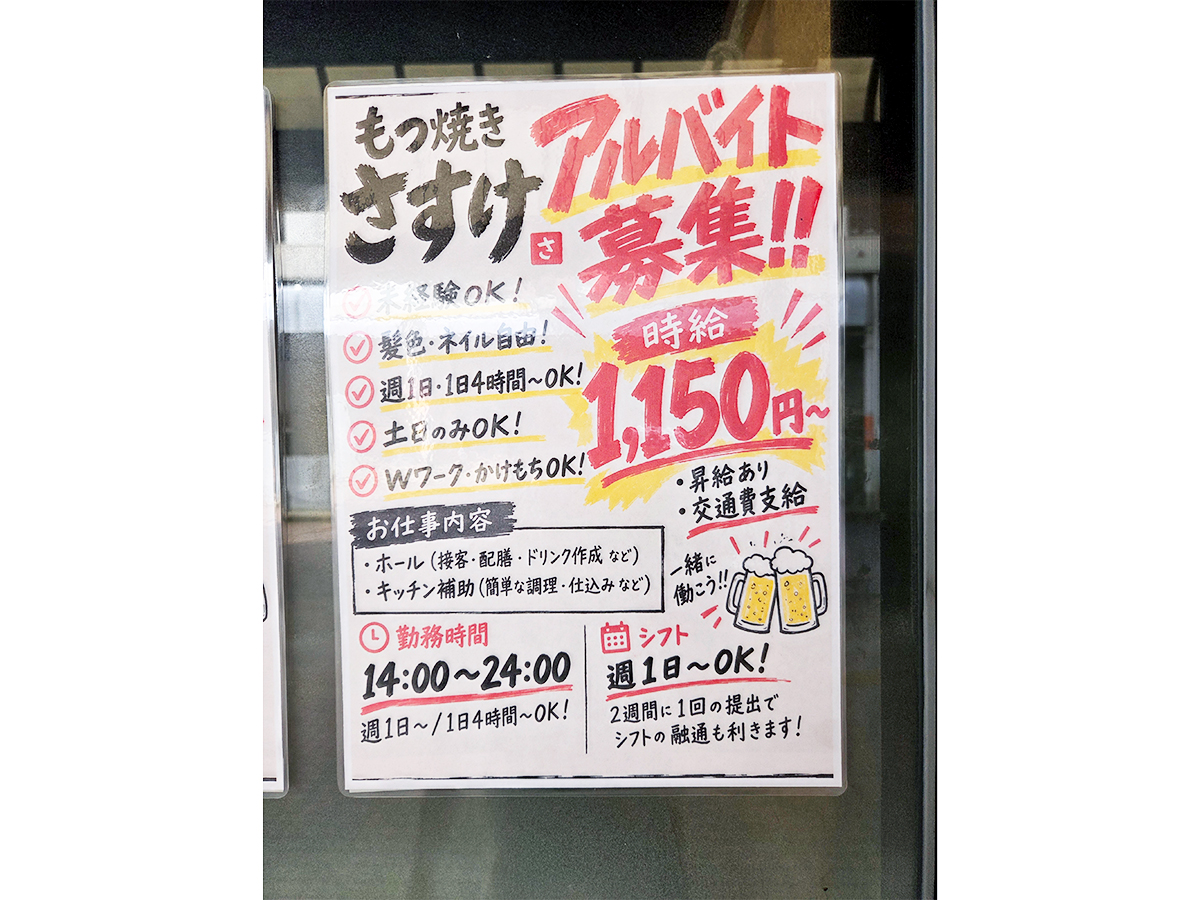 もつ焼き
さすけ
さ
アルバイト
募集!!
未経験OK!
髪色・ネイル自由!
週1日・1日4時間〜OK!
土日のみOK!
Wワーク・かけもちOK!
時給
1,150円〜
・昇給あり
・交通費支給
お仕事内容
・ホール(接客・配膳・ドリンク作成 など)
・キッチン補助(簡単な調理・仕込み など)
一緒に
働こう!!
勤務時間
14:00〜24:00
週1日〜/1日4時間〜OK!
シフト
週1日〜OK!
2週間に1回の提出で
シフトの融通も利きます!